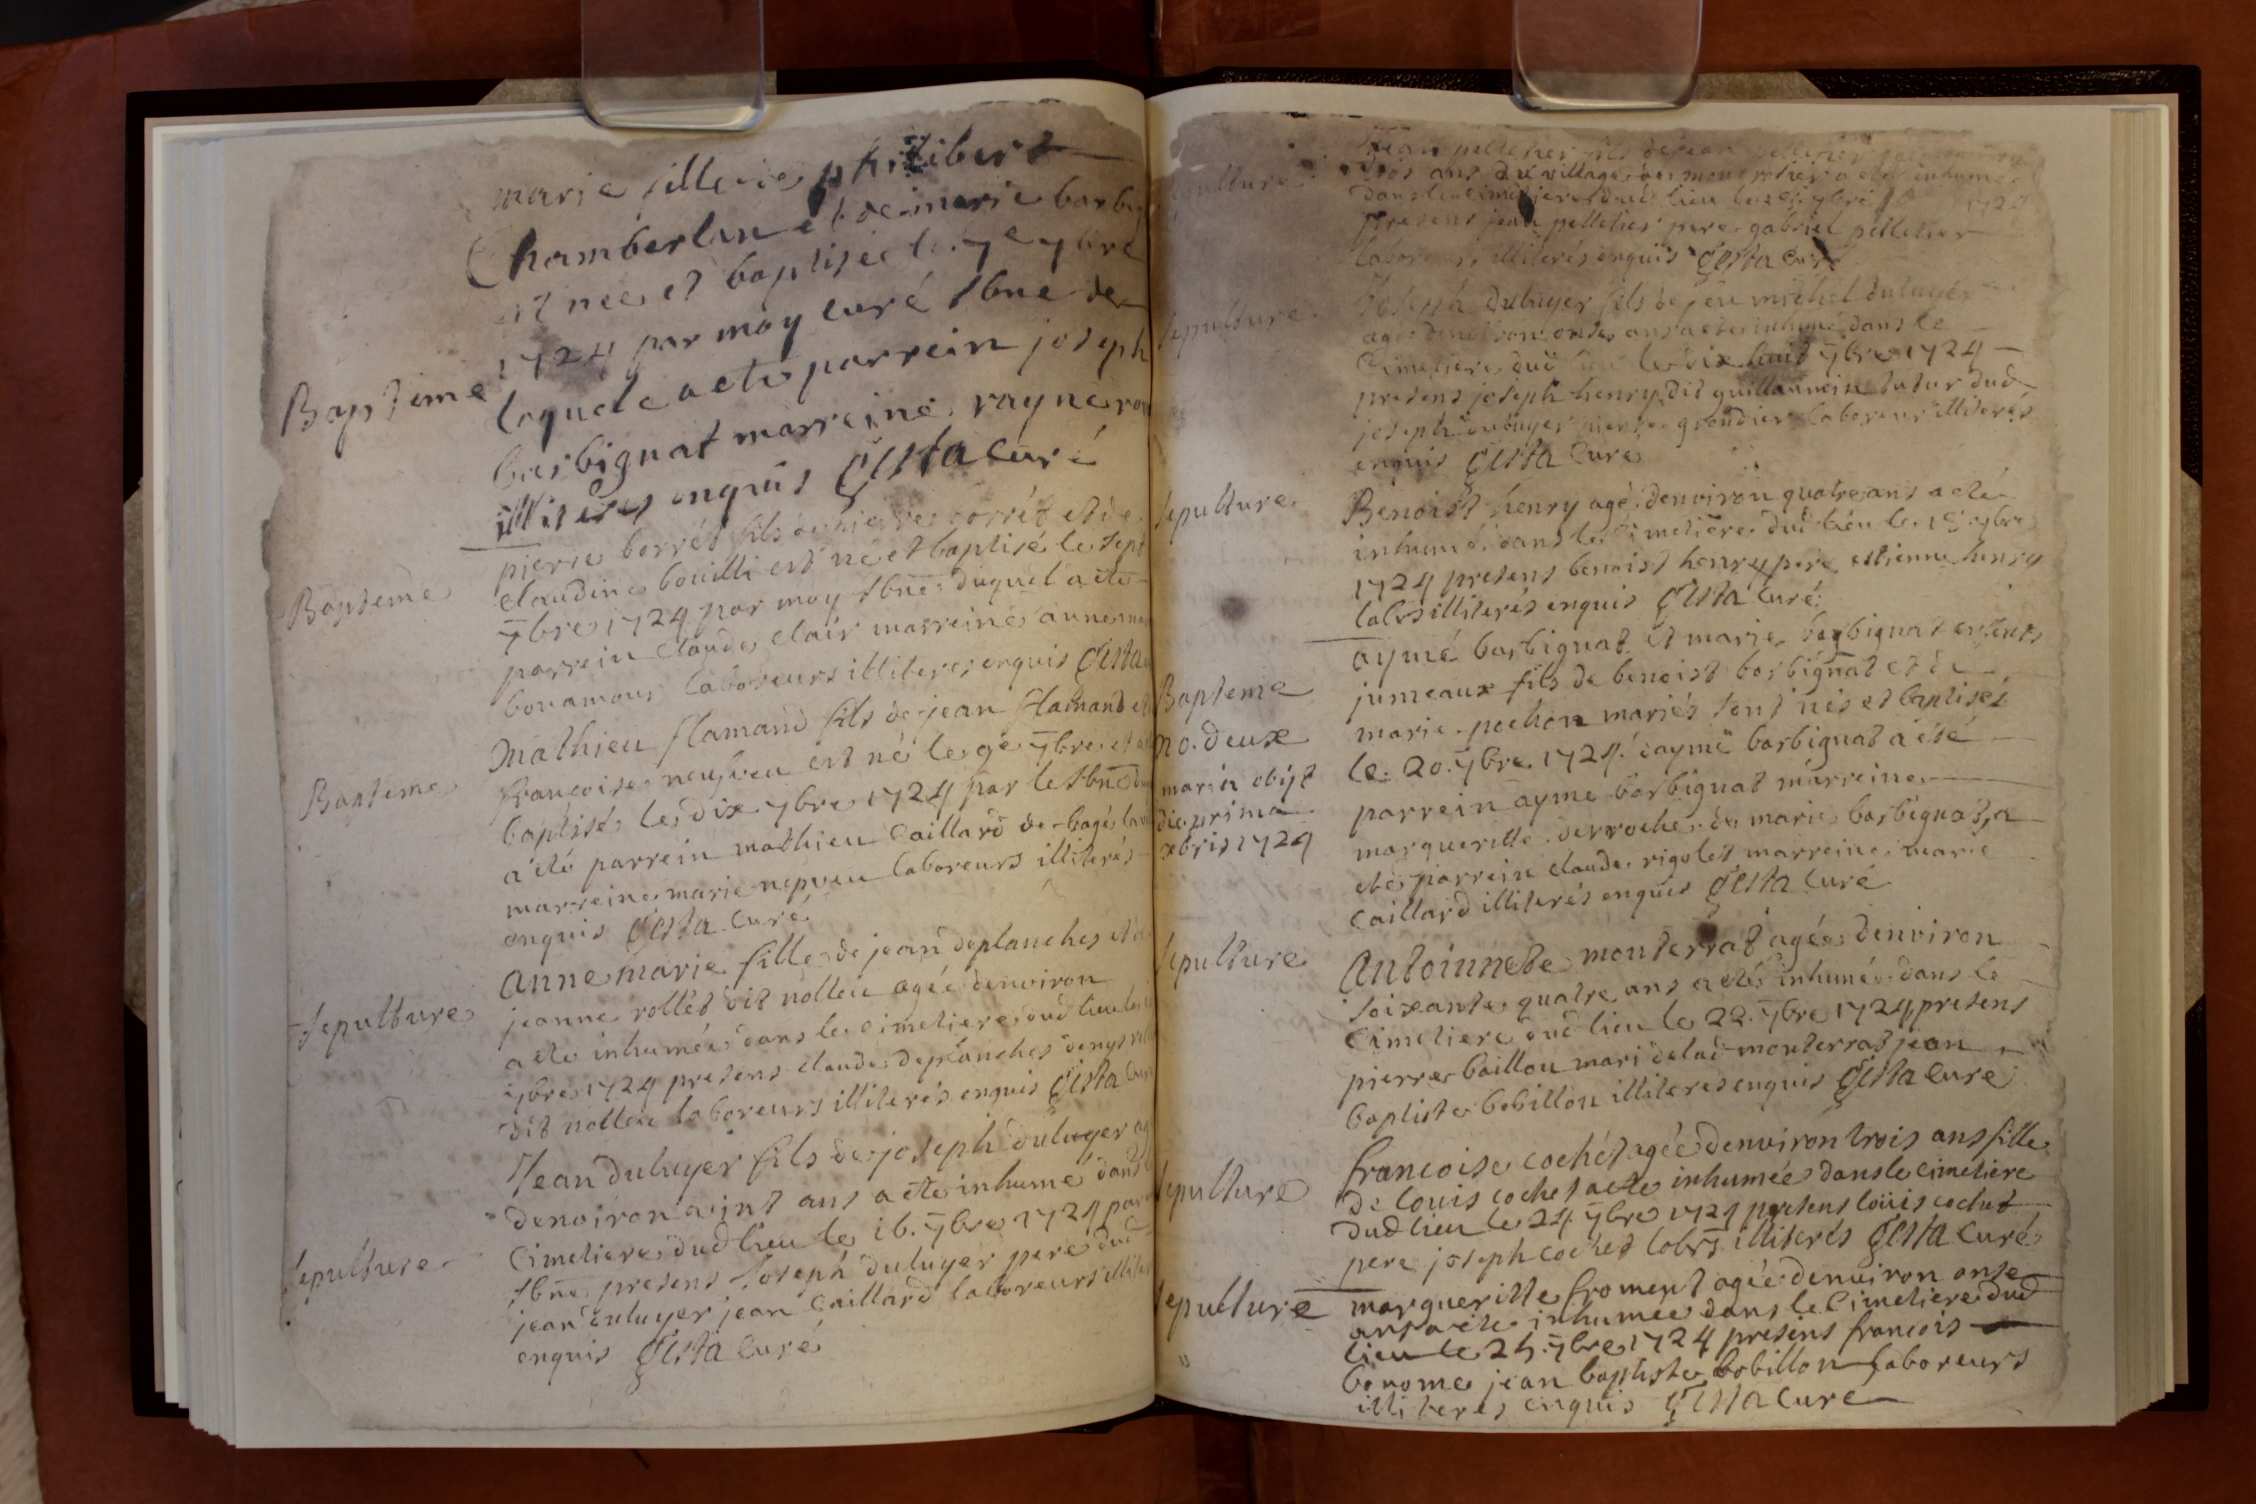 marie fille de philibert
Chamberlan et de marie barbig
est nee et baptisée le 7e 7bre
1724 par moy curé sbne de
Baptême
laquele a ete parrein joseph
barbignat marreine rayne
illiteres enquis Gesta curé
pierre borrét fils de pierre borrét et de
Bapteme
claudine bouilli est né et baptisé le sept
7bre 1724 par moy sbne duquel a ete
parrein claude clair marreine anne
bonamour laboreurs illiteres enquis Gesta
Mathieu flamand fils de jean flamand et
Bapteme
françoise neupveu est né le 9e 7bre et
baptisé le dix 7bre 1724 par le sbne
a été parrein mathieu Caillard de bagé
marreine marie nepveu laboreurs illiterés
enquis Gesta Curé
anne marie fille de jean deplanches et
Sepulture
jeanne rollet dit nolleu agée denviron
a ete inhumée dans le cimetiere dud lieu le
7bre 1724 presens claude deplanches denys
dit nolleu laboreurs illiterés enquis Gesta Cure
Jean duluyer fils de joseph duluyer
denviron vint ans a ete inhumé dans
Sepulture
Cimetiere dud lieu le 16. 7bre 1724 par
sbne presens Joseph duluyer pere dud
jean duluyer jean Caillard laboreurs
enquis Gesta Curé
Jean pelletier fils de jean pelletier
trois ans du village a ete inhumé
dans le cimetiere dud lieu 7bre 1724
presens jean pelletier pere gabriel pelletier
laboreurs illiterés enquis Gesta Curé
Sepulture
Joseph duluyer fils de feu michel duluyer
agé denviron onse ans a ete inhumé dans le
Cimetiere dud lieu le dix huit 7bre 1724
presens joseph henry dit guillaumin tutur dud
joseph duluyer laboreur illiterés
enquis Gesta Curé
Sepulture
Benoist henry agé denviron quatre ans a eté
inhumé dans le cimetiere dud lieu le 7bre
1724 presens benoist henry pere estienne henry
labrs illiterés enquis Gesta Curé
aymé barbignat et marie barbignat enfents
Bapteme
jumeaux fils de benoist barbignat et de
no. deux
marie pochon mariés sont nés et baptisés
maria obijt
le 20. 7bre 1724. daymé barbignat a été
die prima
parrein ayme barbignat marreine
xbris 1724
margueritte derroche de marie barbignat, a
eté parrein claude rigolet marreine marie
Caillard illiterés enquis Gesta Curé
Sepulture
Antoinnete monterrat agée denviron
soixante quatre ans a eté inhumée dans le
Cimetiere dud lieu le 22. 7bre 1724 presens
pierre baillon mari delad monterrat jean
baptiste bobillon illiteres enquis Gesta Curé
francoise cochét agée denviron trois ans fille
Sepulture
de louis cochet a ete inhumée dans le cimetiere
dud lieu le 24 7bre 1724 presens loüis cochet
pere joseph cochet labrs illiterés Gesta Curé
Sepulture
marguerite froment agée denviron onse
ans a ete inhumée dans le cimetiere dud
lieu le 25. 7bre 1724 presens francois
bonome jean baptiste bobillon laboreurs
illiteres enquis Gesta Curé